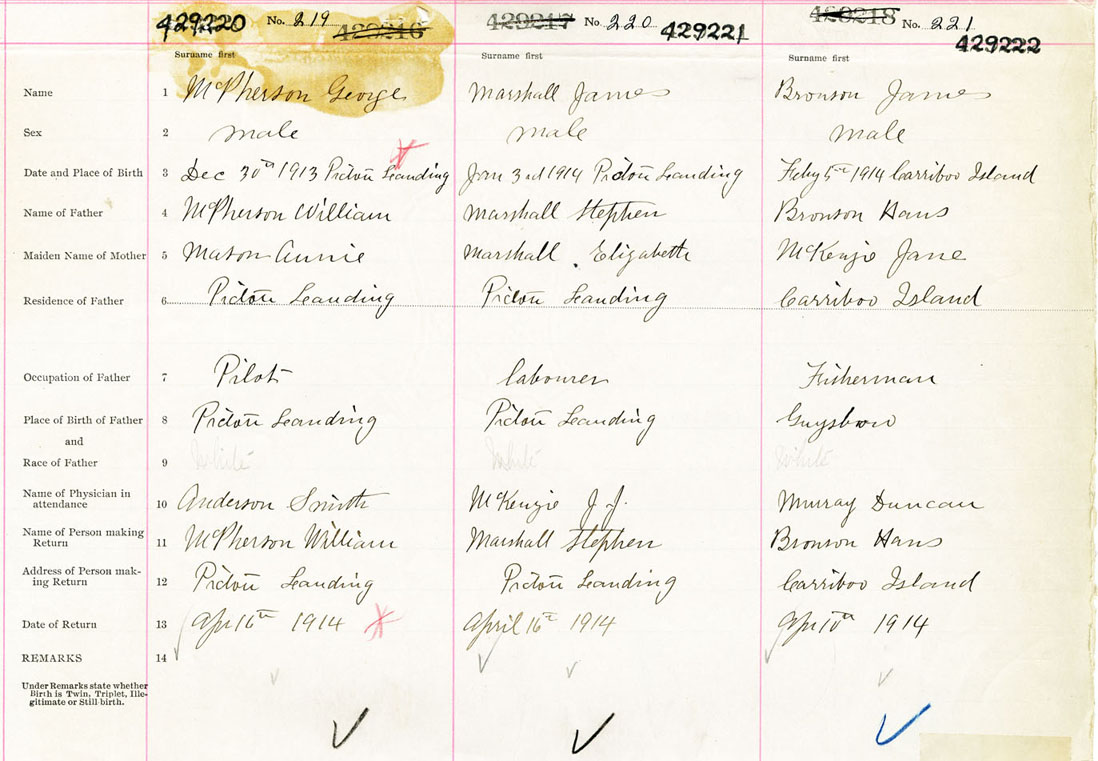 429220 No. 219 429216 429217 No 220 429221 428218 No. 221 429222
Surname first Surname first Surname first
Name 1 McPherson George Marshall James Bronson James
Sex 2 male male male
Date and Place of Birth 3 Dec 30th 1913 Pictou Landing Jan 3rd 1914 Pictou Landing Feby 5th 1914 Carriboo Island
Name of Father 4 McPherson William Marshall Stephen Bronson Hans
Maiden Name of Mother 5 Mason Annie Marshall . Elizabeth McKenzie Jane
Residence of Father 6 Pictou Landing Pictou Landing Carriboo Island
Occupation of Father 7 Pilot labourer Fisherman
Place of Birth of Father 8 Pictou Landing Pictou Landing Guysboro
and
Race of Father 9 White White White
Name of Physician in
attendance 10 Anderson Smith McKenzie J. J. Murray Duncan
Name of Person making
Return 11 McPherson William Marshall Stephen Bronson Hans
Address of Person mak-
ing Return 12 Pictou Landing Pictou Landing Carriboo Island
Date of Return 13 Apr 16th 1914 April 16th 1914 Apr 10th 1914
REMARKS 14
Under Remarks state whether
Birth is Twin, Triplet, Ille-
gitimate or Still-birth.